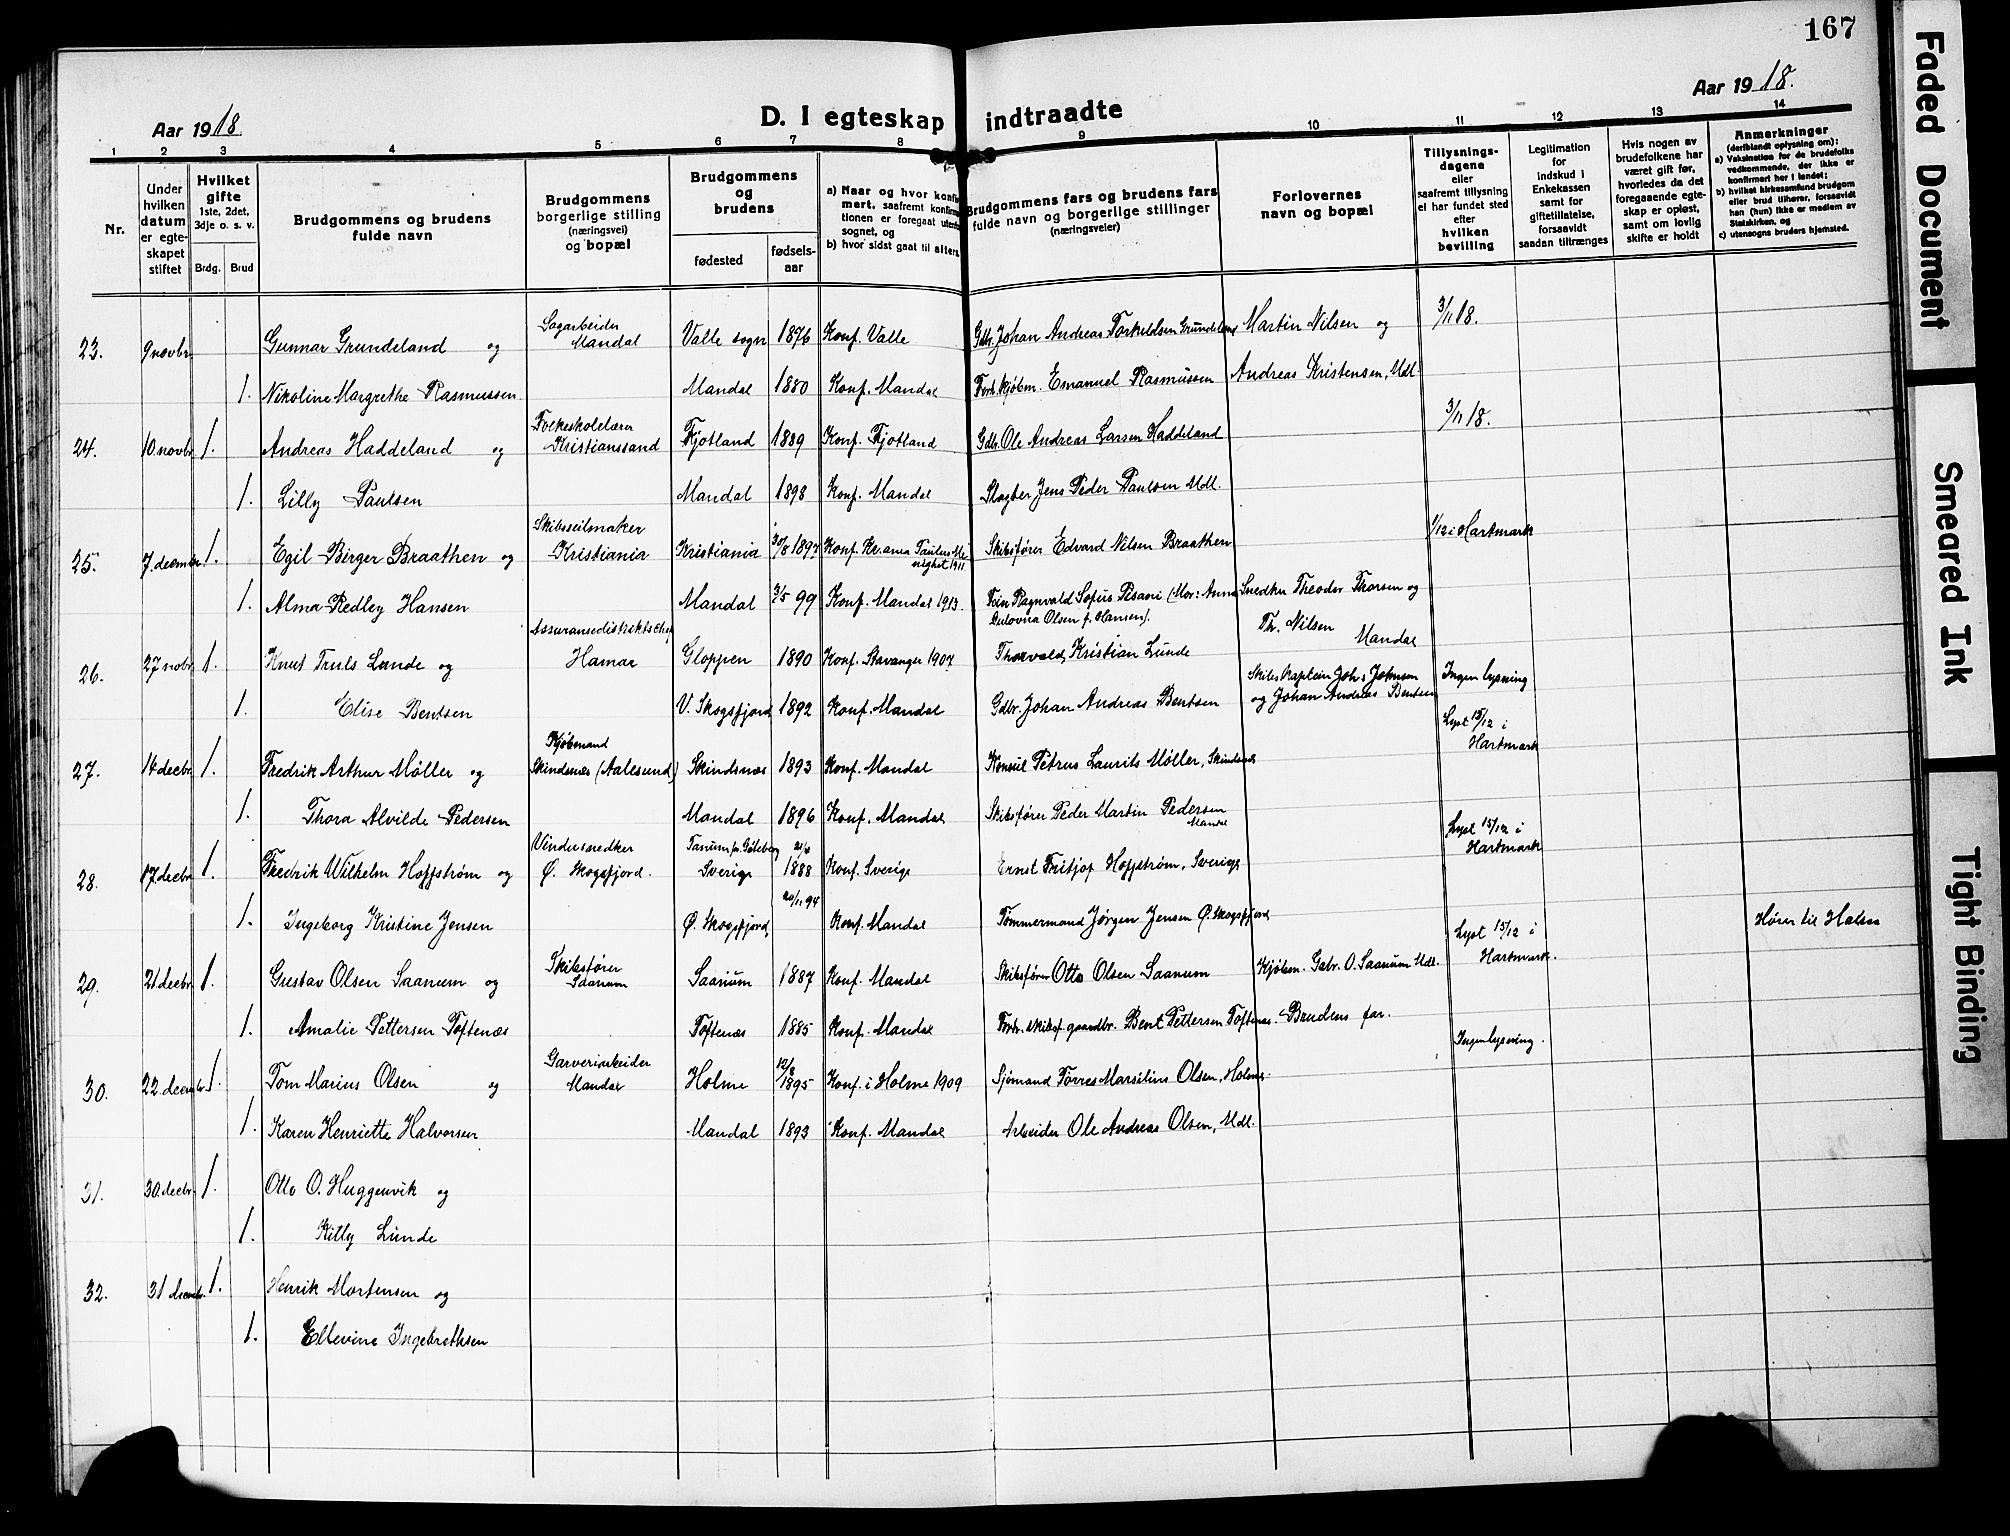 167
Aar 1918
D. I egteskap indtraadte
Aar 1918.
1 2 3 4 5 6 7 8 9 10 11 12 13 14
Nr.
Under hvilken datum er egteskapet stiftet
Hvilket gifte 1ste, 2det, 3dje o. s. v.
Brdg. Brud
Brudgommens og brudens fulde navn
Brudgommens borgerlige stilling (næringsvei) og bopæl
Brudgommens og brudens
fødested fødsels-aar
a) Naar og hvor konfirmert, saafremt konfirmationen er foregaat utenfor sognet, og
b) hvor sidst gaat til alters
Brudgommens fars og brudens fars fulde navn og borgerlige stillinger (næringsveier)
Forlovernes navn og bopæl
Tillysnings-dagene eller saafremt tillysning ei har fundet sted efter hvilken bevilling
Legitimation for indskud i Enkekassen samt for giftetillatelse, forsaavidt saadan tiltrænges
Hvis nogen av brudefolkene har været gift før, hvorledes da det foregaaende egteskap er opløst, samt om lovlig skifte er holdt
Anmerkninger (deriblandt oplysning om):
a) Vaksination for de brudefolks vedkommende, der ikke er konfirmert her i landet;
b) hvilket kirkesamfund brudgom eller brud tilhører, forsaavidt han (hun) ikke er medlem av Statskirken, og
c) utensogns bruders hjemsted.
23. 9 novbr Gunnar Grundeland og Sagarbeider Mandal Valle sogn 1876 Konf. Valle Gdbr. Johan Andreas Torkeldsen Grundeland Martin Nilsen og 3/11 18.
1. Nikoline Margrethe Rasmussen Mandal 1880 Konf. Mandal Forh. kjøbm. Emanuel Rasmussen Andreas Kristensen, Mdl.
24. 10 novbr 1. Andreas Haddeland og Folkeskolelærer Kristianssand Fjotland 1889 Konf. Fjotland Gdbr. Ole Andreas Larsen Haddeland 3/11 18.
1. Lilly Paulsen Mandal 1898 Konf. Mandal Slagter Jens Peder Paulsen Mdl.
25. 7. decmbr 1. Egil Birger Braathen og Skibsseilmaker Kristiania Kristiania 30/8 1897 Konf. Kr.ania Paulus Menighet 1911 Skibsfører Edvard Nilsen Braathen 1/12 i Hartmark
1. Alma Redley Hansen Mandal 3/5 99 Konf. Mandal 1913. Ragnvald Sofus Pisani (Mor: Anna Olsen f. Hansen). Snedker Theodor Thorsen og Th. Nilsen Mandal
26. 27 novbr 1. Knut Truls Lunde og Assuransedistriktschef Hamar Gloppen 1890 Konf. Stavanger 1907 Thorvald Kristian Lunde Skibskaptein Johs Johnsen Ingen lysning
1. Elise Bentsen V. Skogsfjord 1892 Konf. Mandal Gdbr. Johan Andreas Bentsen og Johan Andreas Bentsen
27. 14 decbr 1. Fredrik Arthur Møller og Kjøbmand Skindsnæs (Aalesund) Skindsnæs 1893 Konf. Mandal Konsul Petrus Laurits Møller, Skindsnæs Lyst 15/12 i Hartmark
1. Thora Alvilde Pedersen Mandal 1896 Konf. Mandal Skibsfører Peder Martin Pedersen Mandal
28. 17. decbr 1. Fredrik Wilhelm Hoffstrøm og Ø. Skogsfjord. Tanum pr. Gøteborg Sverige 1888 Konf. Sverige Ernst Fritjof Hoffstrøm, Sverige Lyst 15/12 i Hartmark
1. Ingeborg Kristine Jensen Ø. Skogsfjord 20/11 94 Konf. Mandal Tømmermand Jørgen Jensen Ø. Skogsfjord Hører til Halse
29. 21 decbr 1. Gustav Olsen Saanum og Skibsfører Saanum Saanum 1887 Konf. Mandal Skibsfører Otto Olsen Saanum Kjøbm. Gabr. O. Saanum Mdl. Lyst 15/12 i Hartmark.
1. Amalie Pettersen Toftenæs Toftenæs 1885 Konf. Mandal Forh. skibsf. gaardbr. Bent Pettersen Toftenæs. Brudens far.
30. 22 decmbr. 1. Tom Marius Olsen og Garveriarbeider Mandal Holme 12/8 1895 Konf. i Holme 1909 Sjømand Torres Marsilius Olsen, Holme Ingen lysning.
1. Karen Henriette Halvorsen Mandal 1893 Konf. Mandal Arbeider Ole Andreas Olsen, Mdl.
31. 30. decbr. 1. Otto O. Huggenvik og
1. Kitty Lunde
32. 31 decmbr. 1. Henrik Mortensen og
1. Ellevine Ingebrethsen
Faded Document
Smeared Ink
Tight Binding